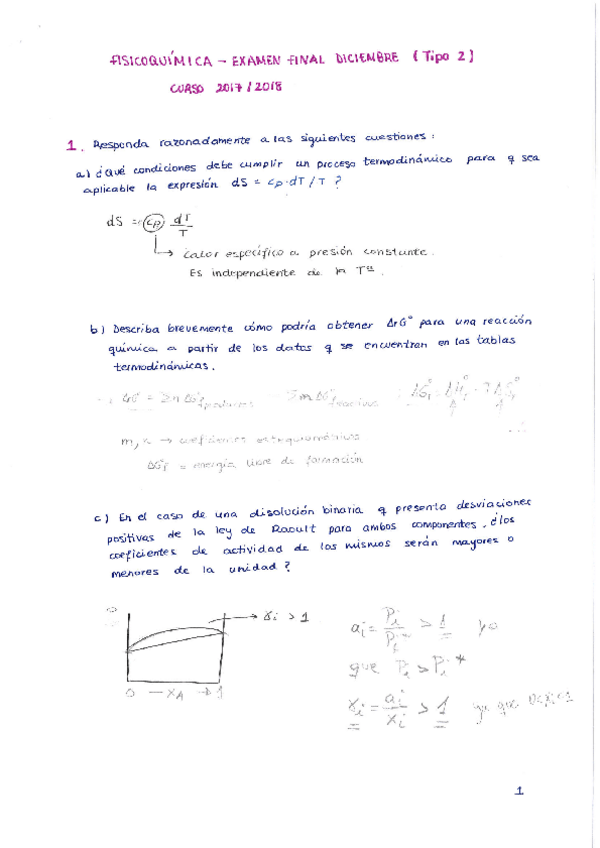 FISICOQUÍMICA - EXAMEN FINAL DICIEMBRE (Tipo 2)
CURSO 2017/2018
1. Responda razonadamente a las siguientes cuestiones:
a) ¿Qué condiciones debe cumplir un proceso termodinámico para q sea
aplicable la expresión dS = Cp·dT/T ?
dS = Cp dT/T
→ calor específico a presión constante.
Es independiente de la Tª.
b) Describa brevemente cómo podría obtener ΔrG° para una reacción
química a partir de los datos q se encuentran en las tablas
termodinámicas.
m, n → coeficientes estequiométricos
ΔG°f = energía libre de formación
c) En el caso de una disolución binaria q presenta desviaciones
positivas de la ley de Raoult para ambos componentes, ¿los
coeficientes de actividad de los mismos serán mayores o
menores de la unidad?
→ γi > 1
ai = Pi/Pi* > 1 ya
que Pi > Pi*
0 — XA → 1
γi = ai/xi > 1 ya que
1